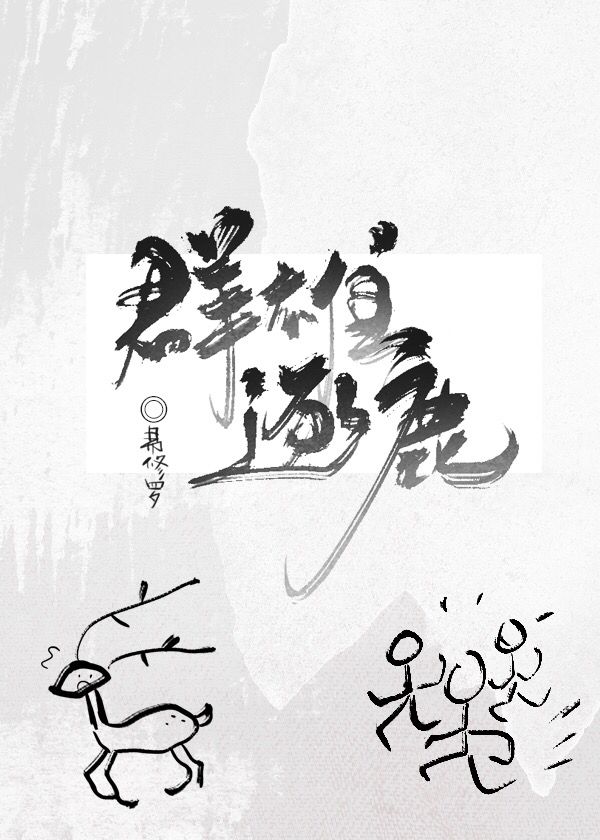 群雄
逐鹿
易修罗